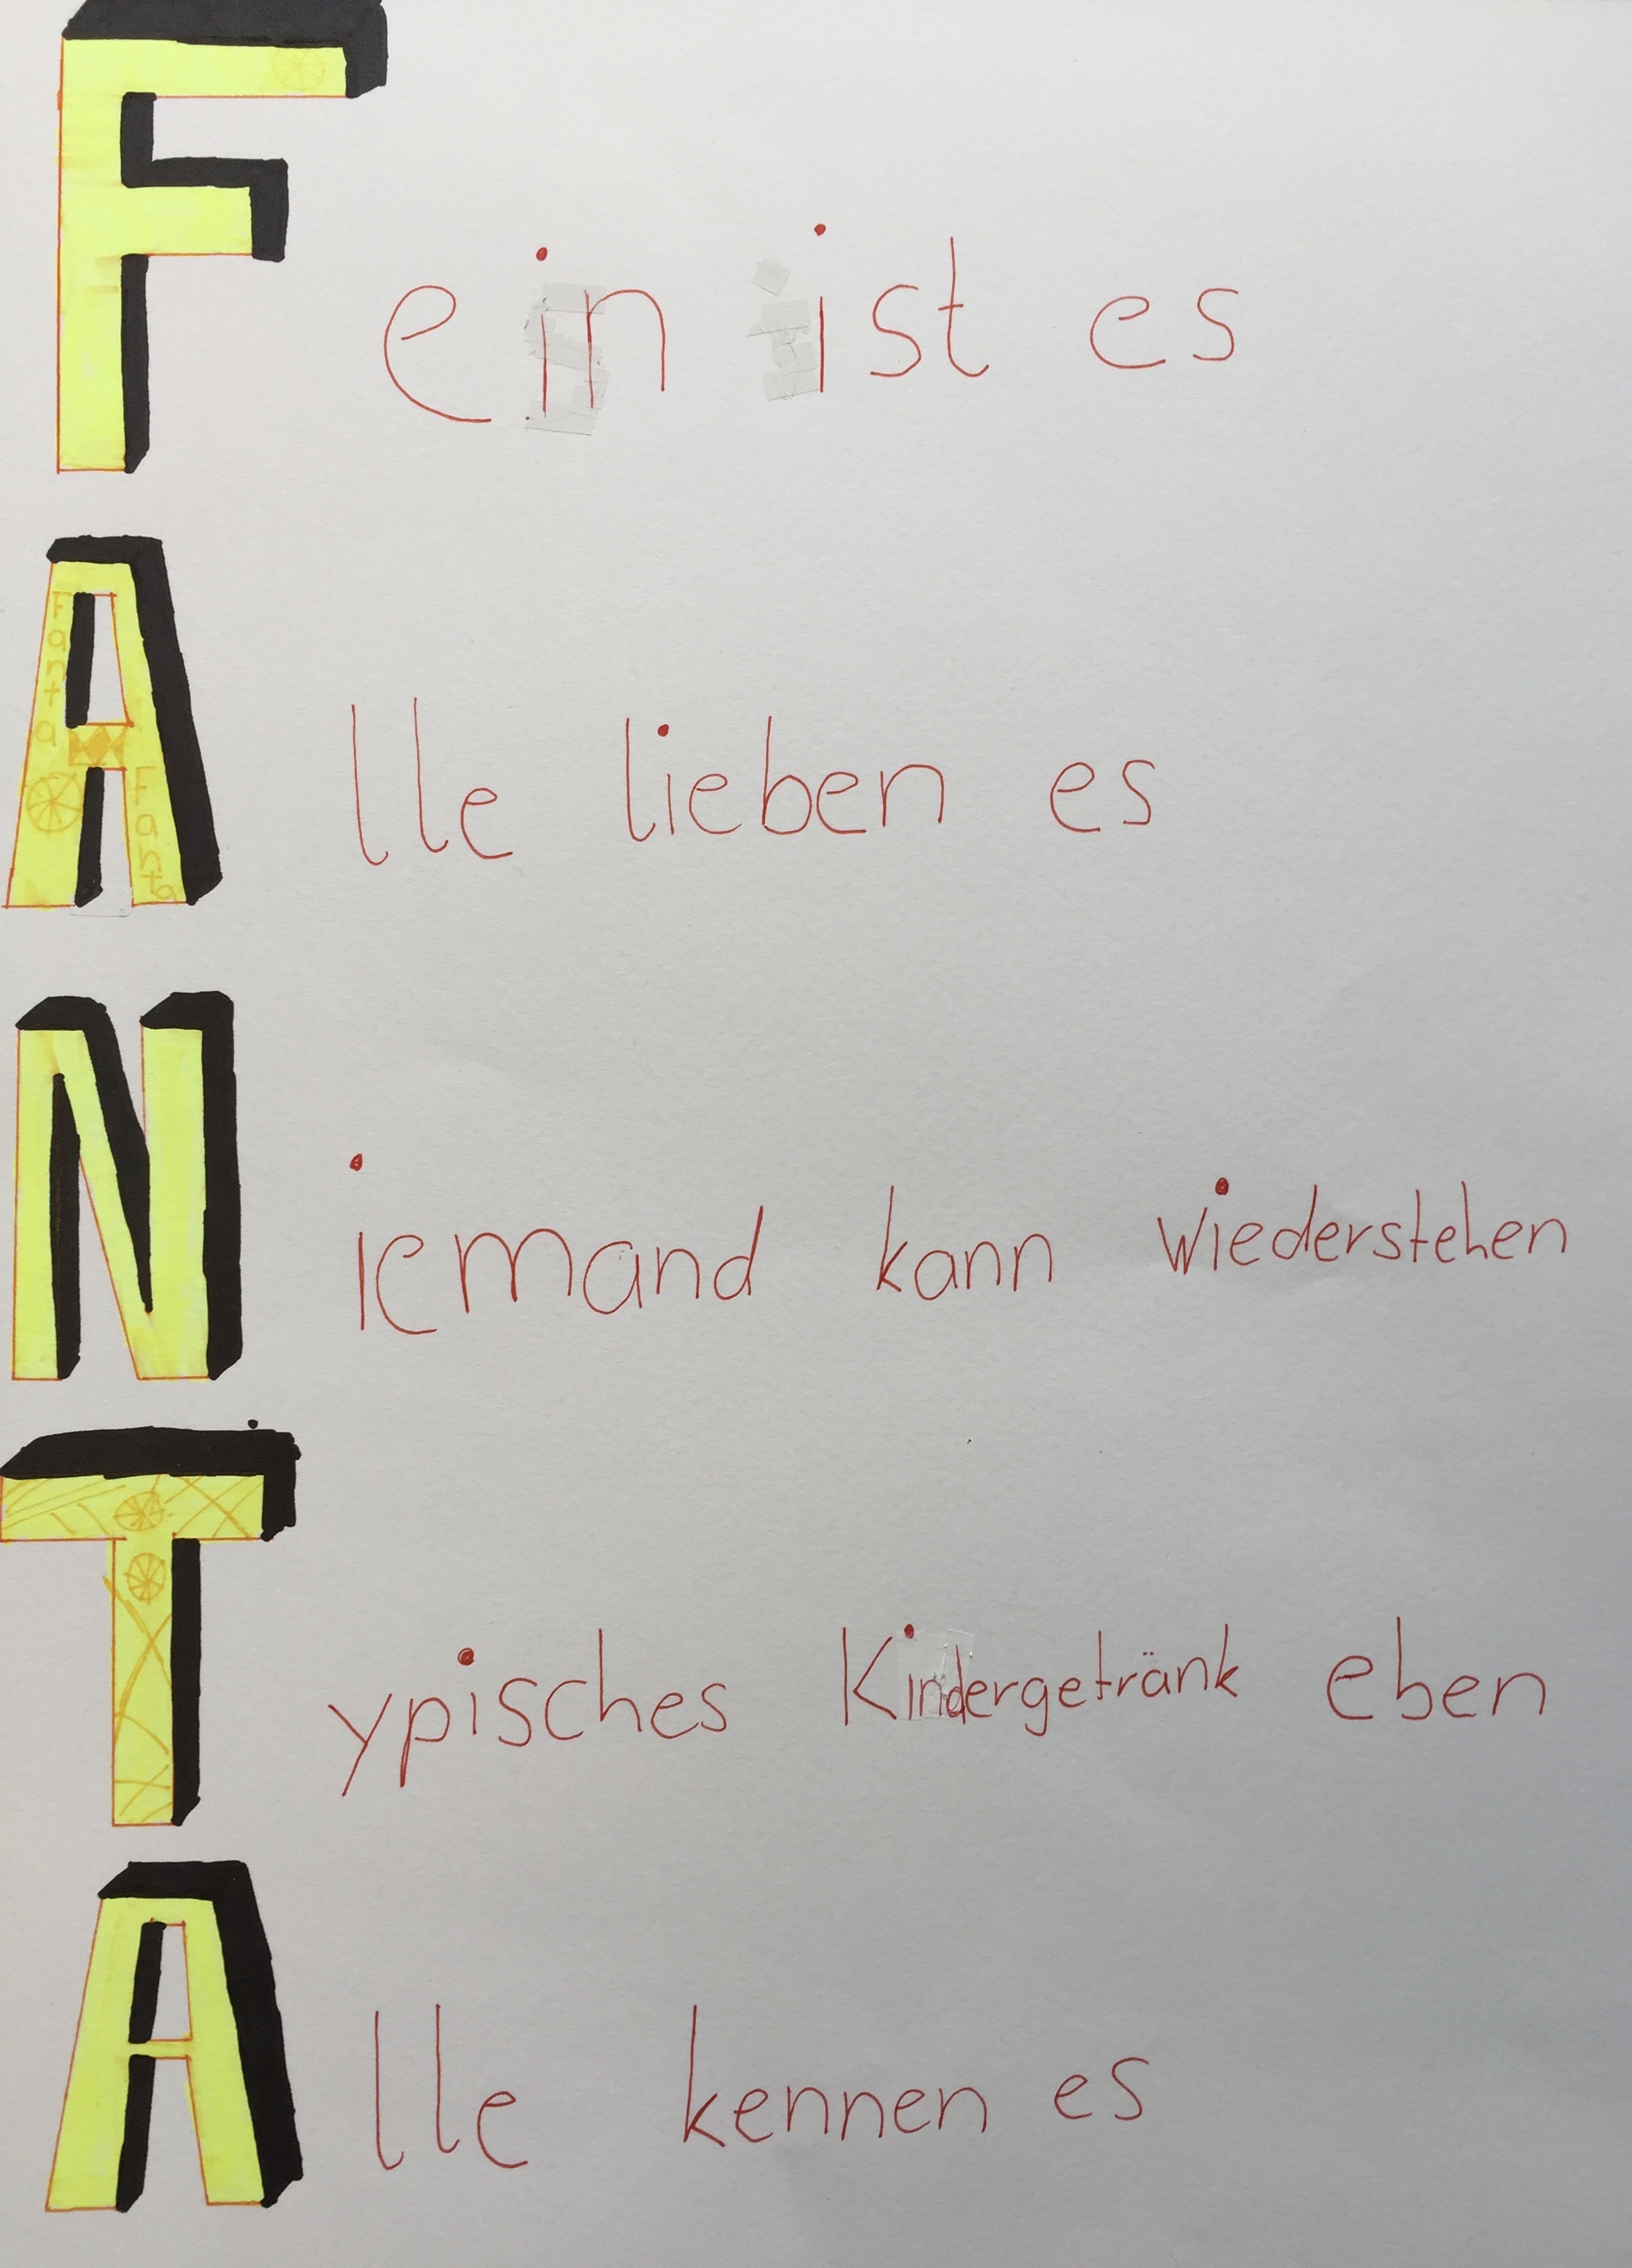 Fein ist es
Alle lieben es
Niemand kann wiederstehen
Typisches Kindergetränk eben
Alle kennen es
Fanta
Fanta